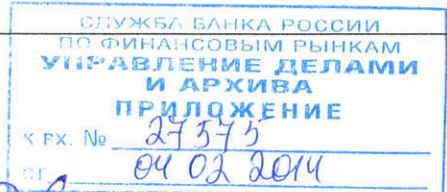 СЛУЖБА БАНКА РОССИИ
ПО ФИНАНСОВЫМ РЫНКАМ
УПРАВЛЕНИЕ ДЕЛАМИ
И АРХИВА
ПРИЛОЖЕНИЕ
К ВХ. № 27575
ОТ 04 02 2014